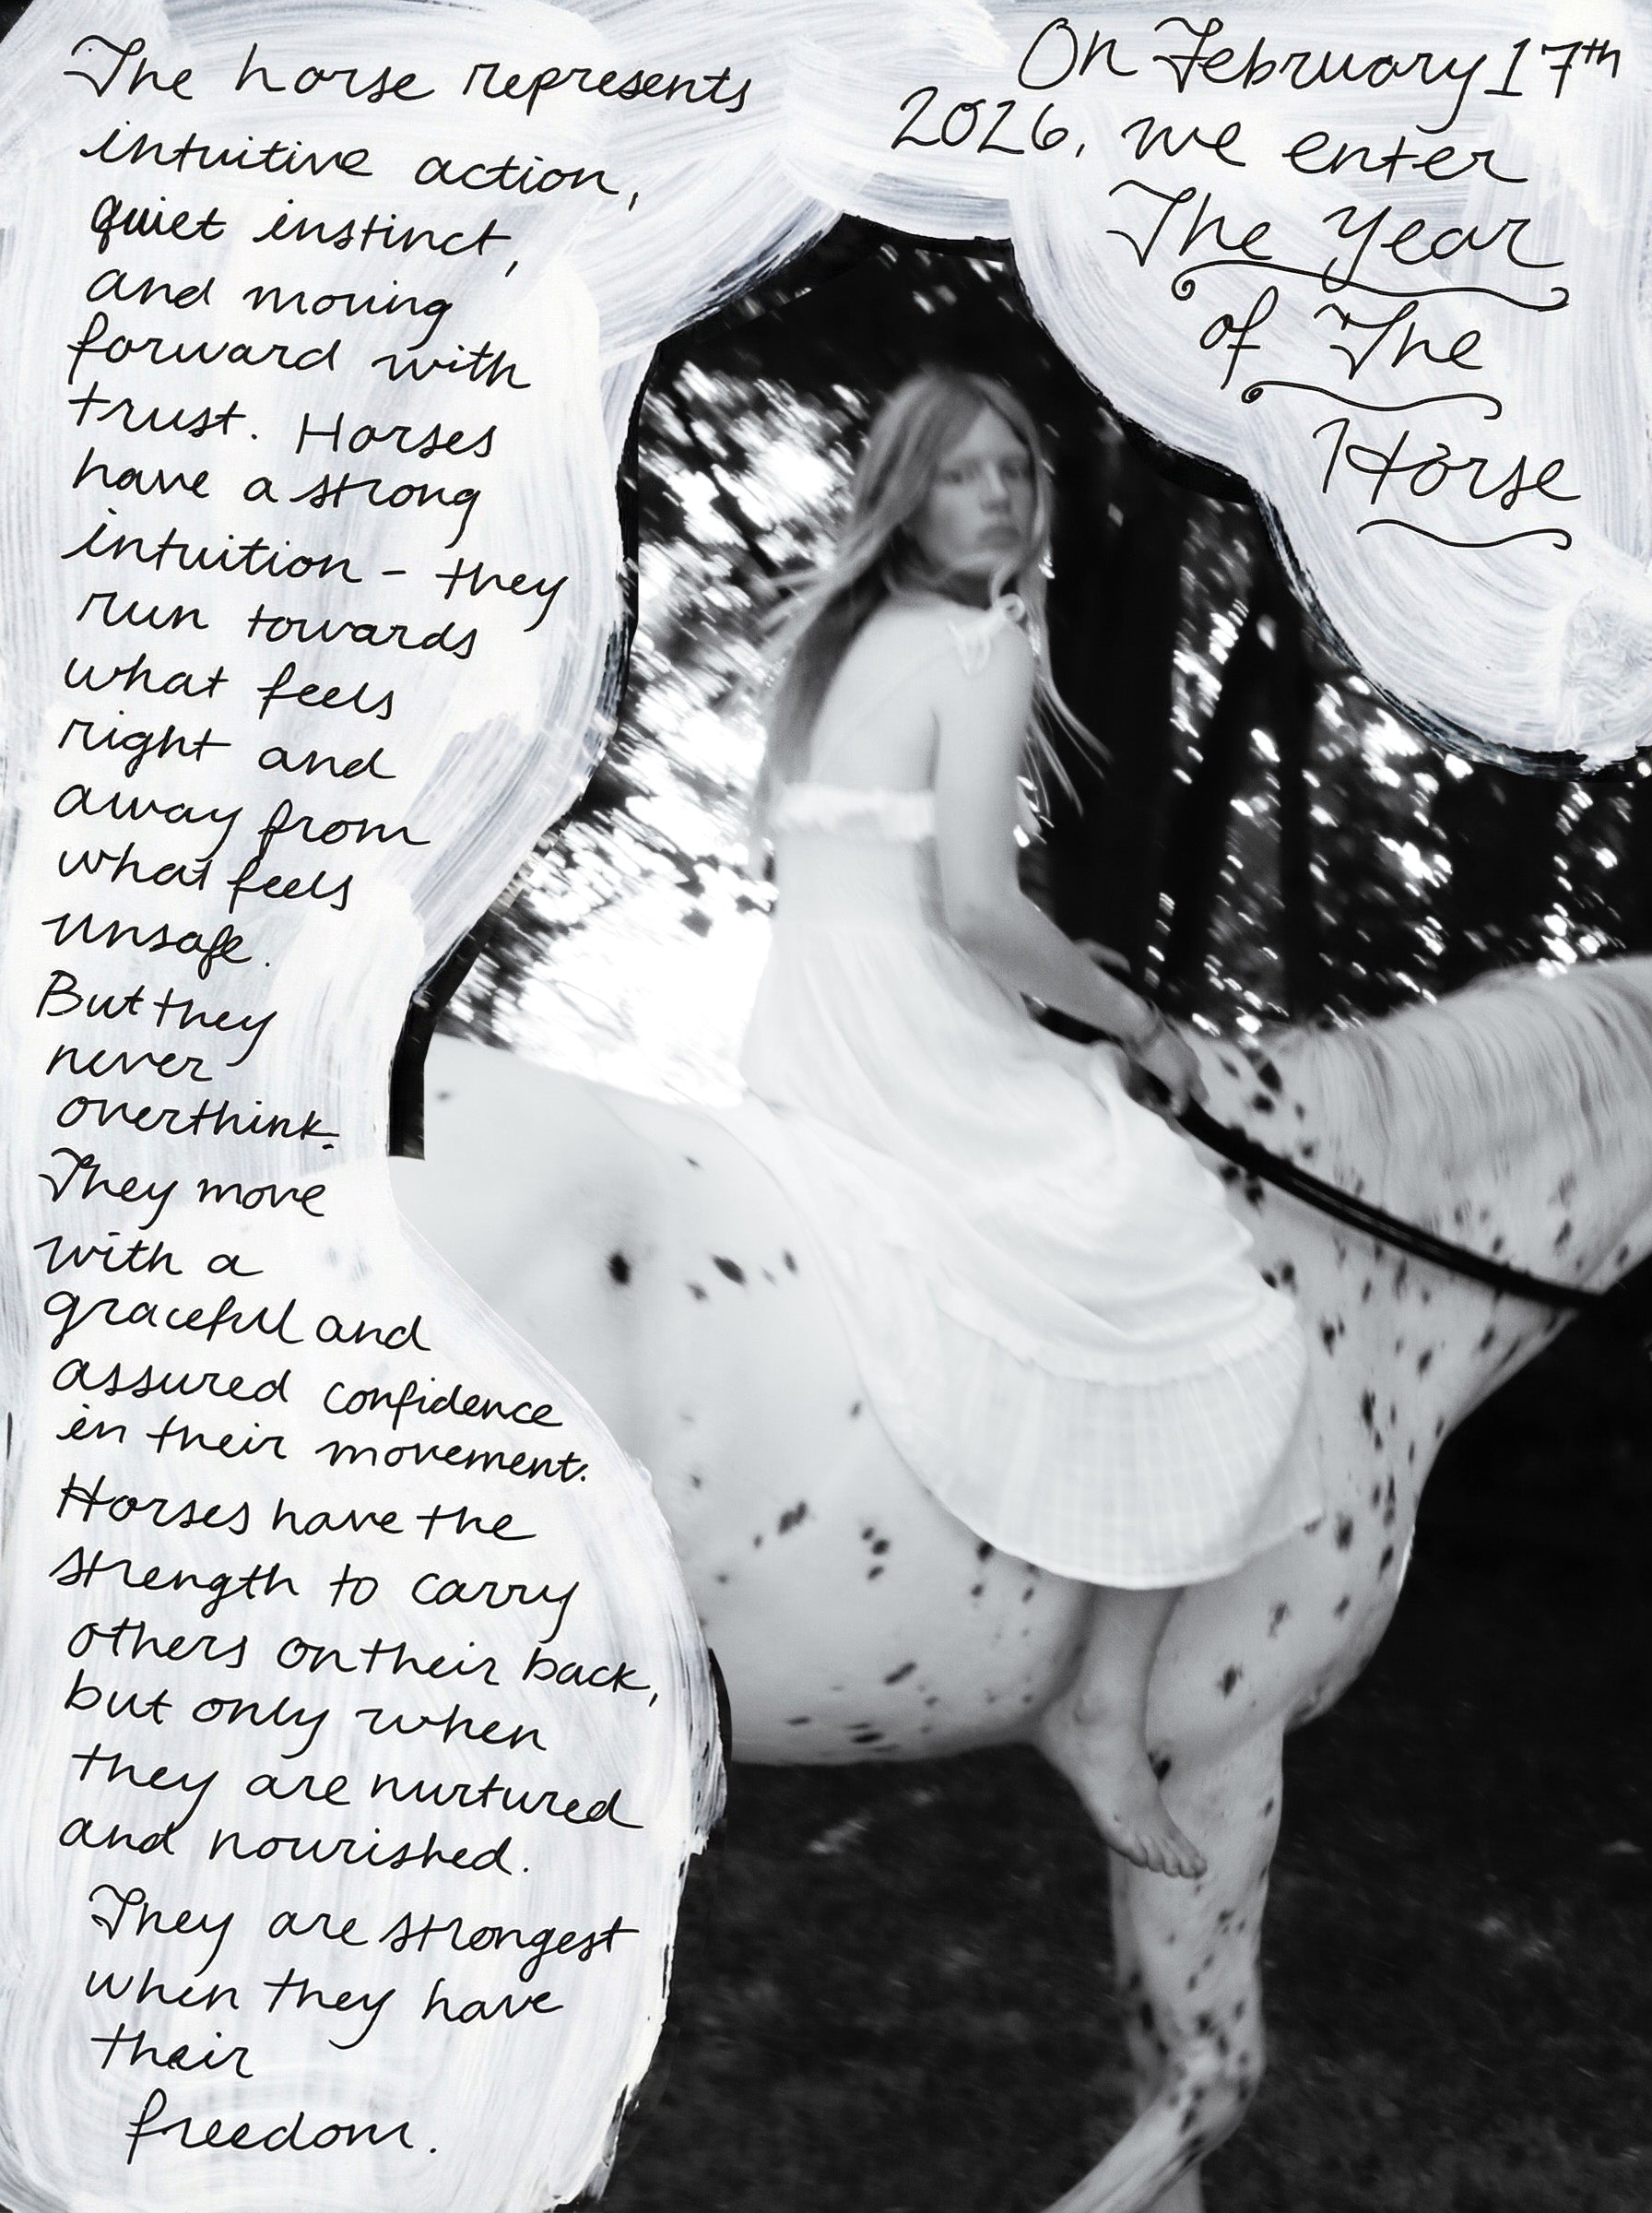 The horse represents
intuitive action,
quiet instinct,
and moving
forward with
trust. Horses
have a strong
intuition - they
run towards
what feels
right and
away from
what feels
unsafe.
But they
never
overthink.
They move
with a
graceful and
assured confidence
in their movement.
Horses have the
strength to carry
others on their back,
but only when
they are nurtured
and nourished.
They are strongest
when they have
their
freedom.
On February 17th
2026, we enter
The Year
of The
Horse